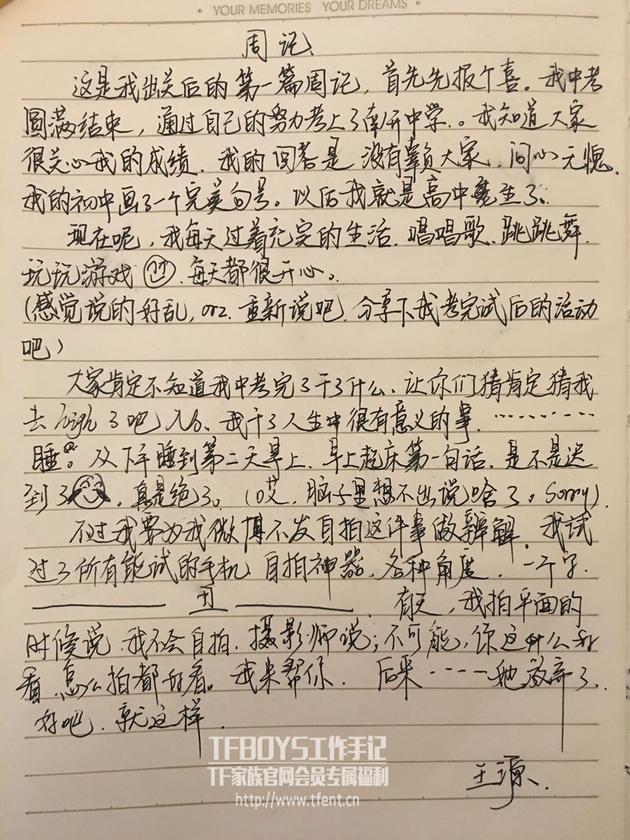 YOUR MEMORIES YOUR DREAMS
周记
这是我出关后的第一篇周记，首先先报个喜。我中考
圆满结束，通过自己的努力考上了南开中学。。我知道大家
很关心我的成绩，我的回答是 没有辜负大家，问心无愧，
我的初中画了一个完美句号。以后我就是高中魔生了。
现在呢，我每天过着充实的生活，唱唱歌、跳跳舞，
玩玩游戏 每天都很开心。
(感觉说的好乱，orz. 重新说吧，分享下我考完试后的活动
吧)
大家肯定不知道我中考完了干了什么，让你们猜肯定猜我
去high了吧 No. 我干了人生中很有意义的事．…………
睡。从下午睡到第二天早上，早上起床第一句话，是不是迟
到了，真是绝了。(哎，脑子里想不出说啥了。Sorry)
不过我要为我微博不发自拍这件事做辩解，我试
过了所有能试的手机，自拍神器，各种角度．一个字．
丑 有天，我拍平面的
时候说，我不会自拍，摄影师说；不可能，你这什么
看，怎么拍都好看。我来帮你． 后来····她放弃了．
好吧．就这样．
王源．
TFBOYS工作手记
TF家族官网会员专属福利
http://www.tfent.cn